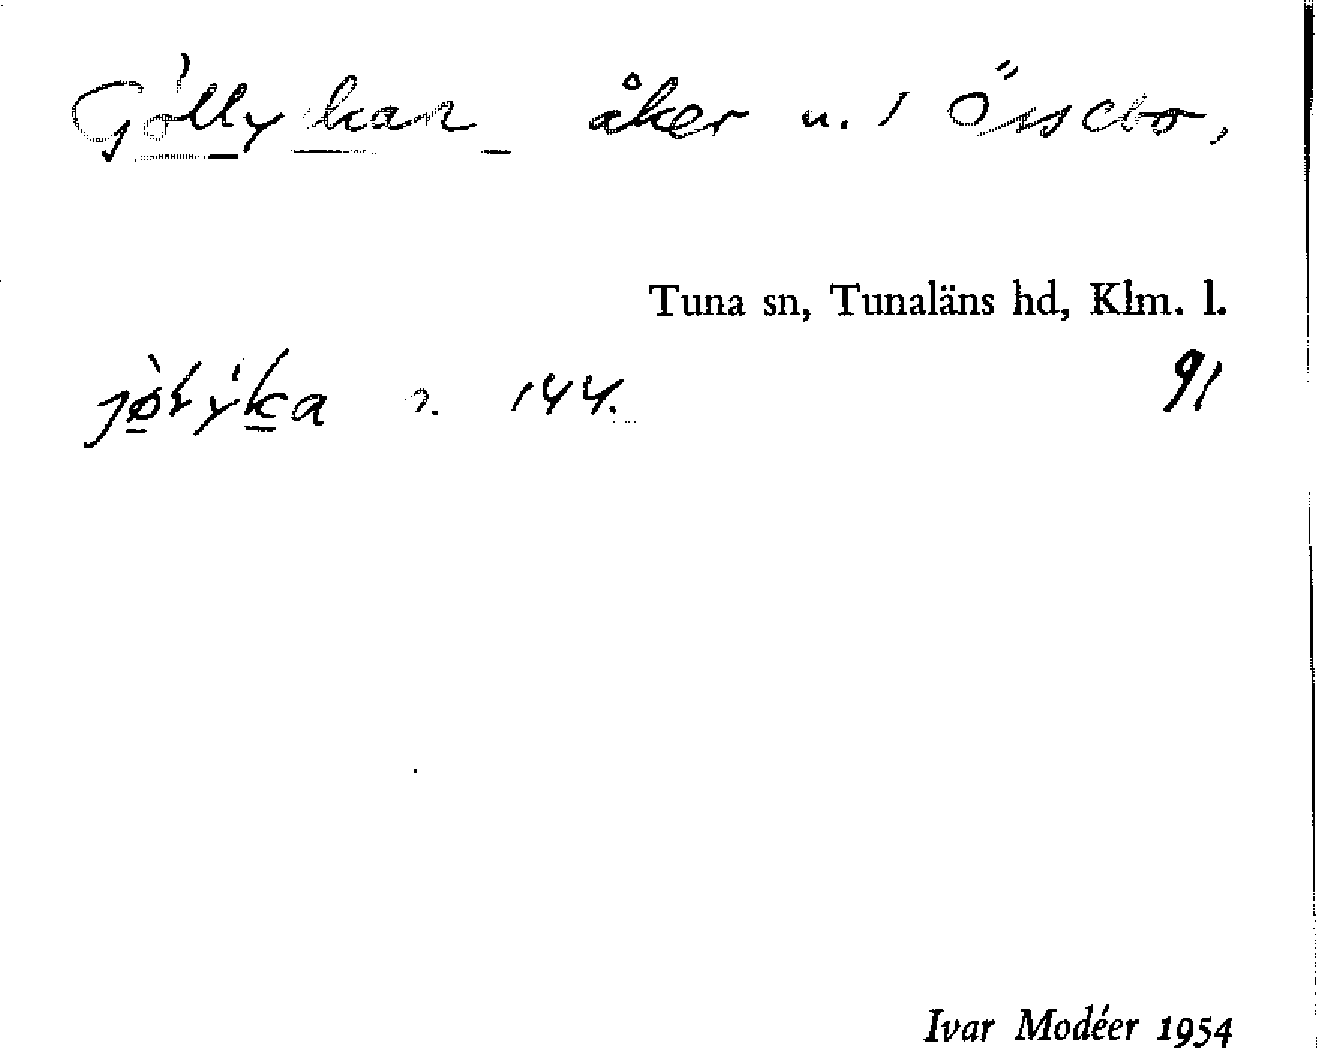 Göllykan åker u. / Össebo,
Tuna sn, Tunaläns hd, Klm. l.
144. 91
Ivar Modéer 1954